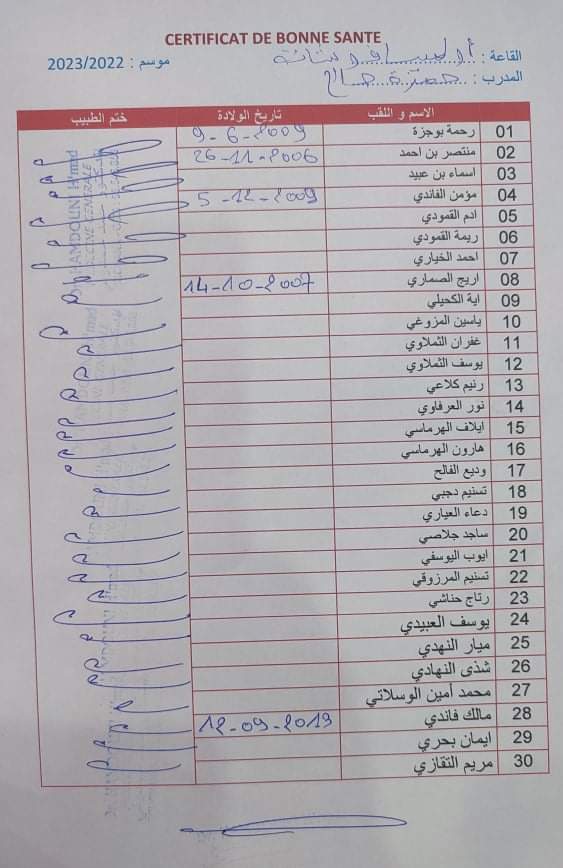 CERTIFICAT DE BONNE SANTE
القاعة :
موسم : 2023/2022
المدرب : حمزة صالح
الاسم و اللقب تاريخ الولادة ختم الطبيب
01 رحمة بوجزة 9-6-2009
02 منتصر بن احمد 26-11-2006
03 اسماء بن عبيد
04 مؤمن الفاندي 5-12-2009
05 ادم القمودي
06 ريمة القمودي
07 احمد الخياري
08 اريج الصماري 14-10-2007
09 اية الكحيلي
10 ياسين المزوغي
11 غفران الثملاوي
12 يوسف الثملاوي
13 رنيم كلاعي
14 نور العرفاوي
15 ايلاف الهرماسي
16 هارون الهرماسي
17 وديع الفالح
18 تسنيم دجبي
19 دعاء العياري
20 ساجد جلاصي
21 ايوب اليوسفي
22 تسنيم المرزوقي
23 رتاج حناشي
24 يوسف العبيدي
25 ميار النهدي
26 شذى النهادي
27 محمد أمين الوسلاتي
28 مالك فاندي 12-09-2019
29 ايمان بحري
30 مريم التقازي